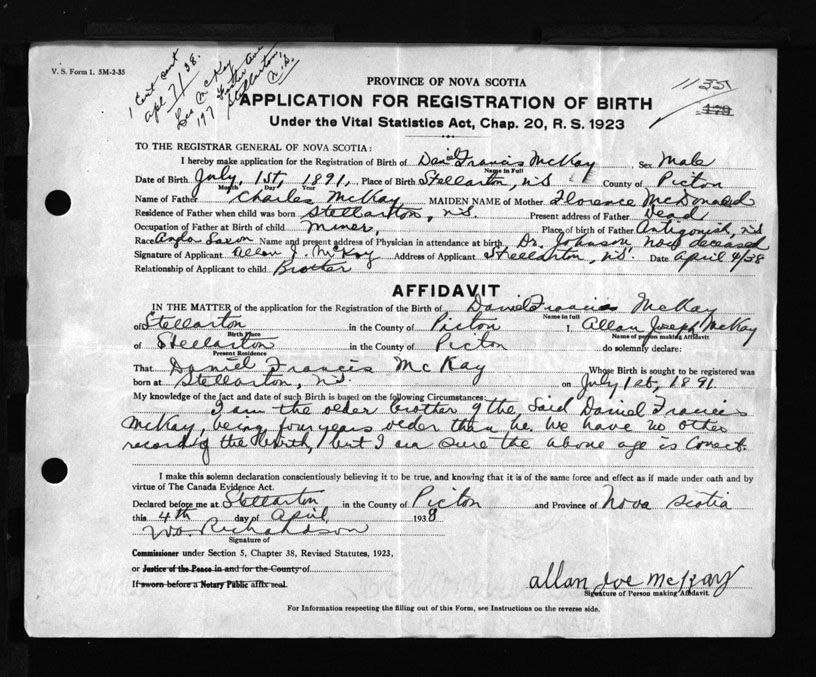 V. S. Form 1. 5M-2-35
1 Cert sent
apl 7/38.
Geo McKay
197 Foster Ave
Stellarton,
N.S.
1135
179
PROVINCE OF NOVA SCOTIA
APPLICATION FOR REGISTRATION OF BIRTH
Under the Vital Statistics Act, Chap. 20, R. S. 1923
TO THE REGISTRAR GENERAL OF NOVA SCOTIA:
I hereby make application for the Registration of Birth of Daniel Francis McKay Sex Male
Name in Full
Date of Birth July, 1st, 1891, Place of Birth Stellarton, N.S County of Picton
Month Day Year
Name of Father Charles McKay MAIDEN NAME of Mother Florence McDonald
Residence of Father when child was born Stellarton, N.S. Present address of Father Dead
Occupation of Father at Birth of child Miner, Place of birth of Father Antigonish, N.S
Race Anglo Saxon Name and present address of Physician in attendance at birth, Dr. Johnson, now deceased
Signature of Applicant Allan J. McKay Address of Applicant Stellarton, N.S. Date April 4/38
Relationship of Applicant to child Brother
AFFIDAVIT
IN THE MATTER of the application for the Registration of the Birth of Daniel Francis McKay
Name in full
of Stellarton in the County of Picton I, Allan Joseph McKay
Birth Place
Name of person making Affidavit
of Stellarton in the County of Picton do solemnly declare:
Present Residence
That Daniel Francis McKay Whose Birth is sought to be registered was
born at Stellarton, N.S. on July 1st, 1891.
My knowledge of the fact and date of such Birth is based on the following Circumstances:
I am the older brother of the Said Daniel Francis
McKay, being four years older than he. We have no other
record of the birth, but I am sure the above age is Correct.
I make this solemn declaration conscientiously believing it to be true, and knowing that it is of the same force and effect as if made under oath and by
virtue of The Canada Evidence Act.
Declared before me at Stellarton in the County of Picton and Province of Nova Scotia
this 4th day of April 1938
Wo. Richardson
Signature of
Commissioner under Section 5, Chapter 38, Revised Statutes, 1923,
or Justice of the Peace in and for the County of
If sworn before a Notary Public affix seal.
allan Joe McKay
Signature of Person making Affidavit.
For Information respecting the filling out of this Form, see Instructions on the reverse side.